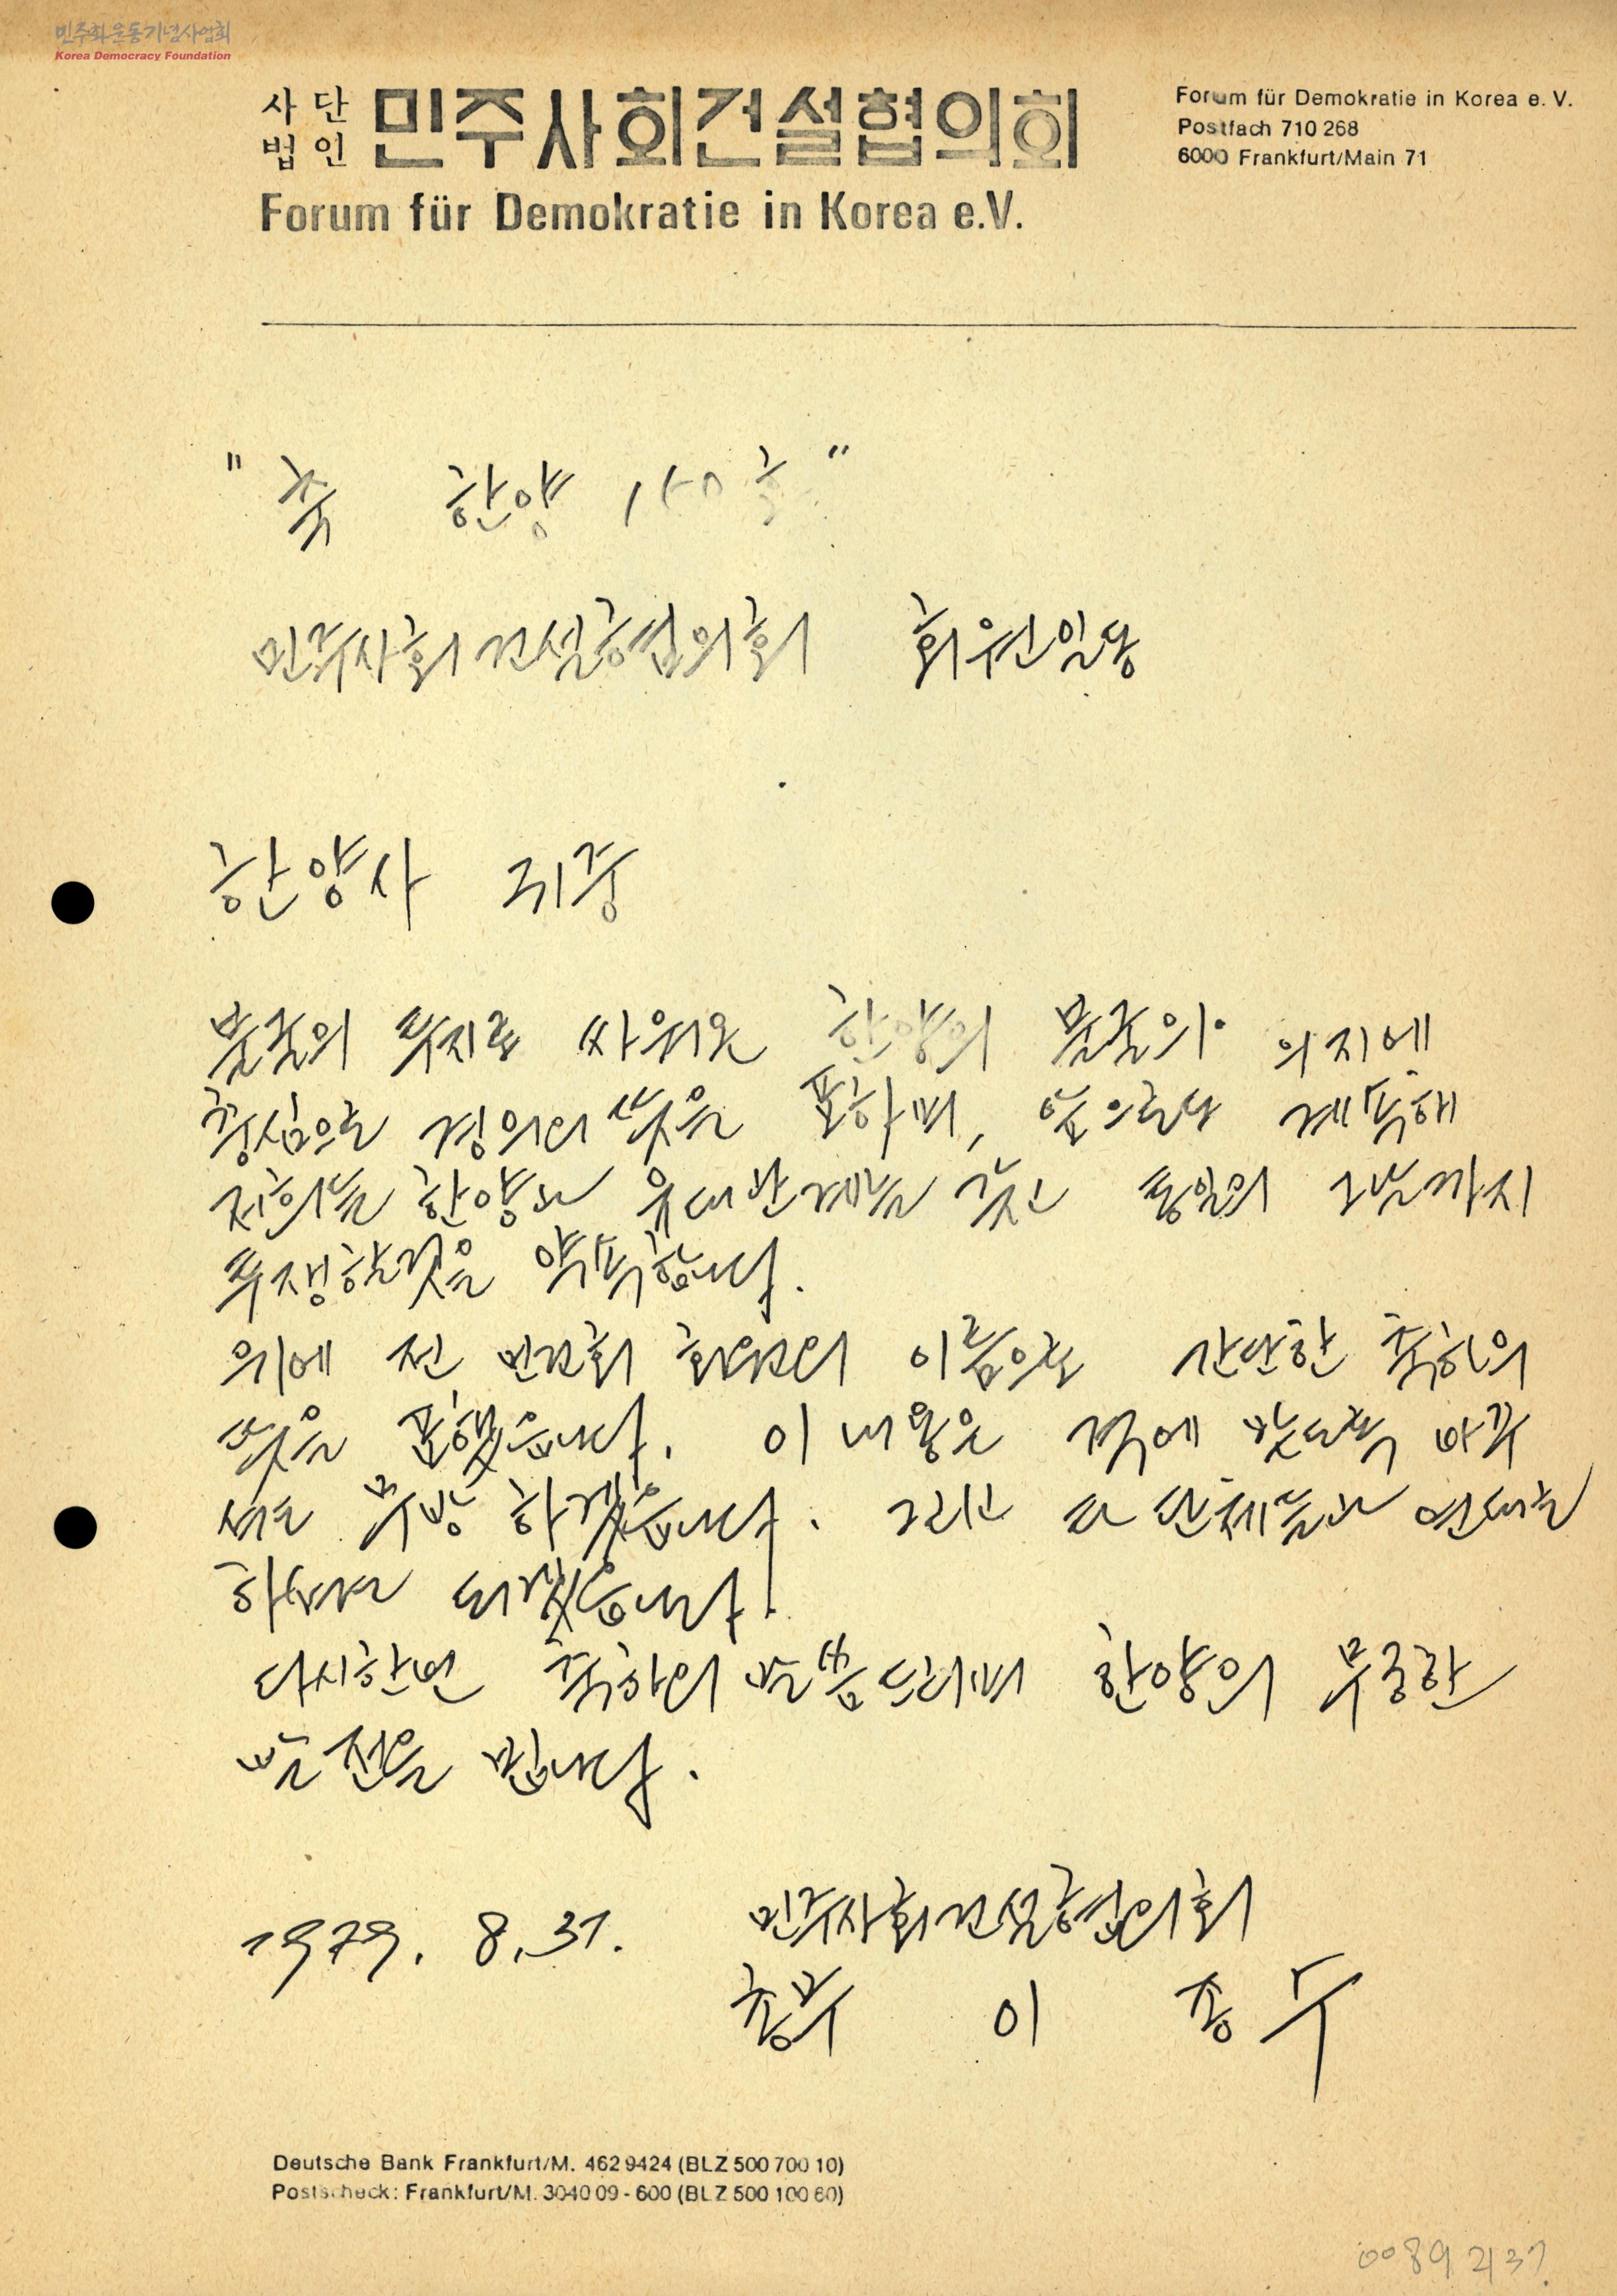 민주화운동기념사업회
Korea Democracy Foundation
사단
법인 민주사회건설협의회
Forum für Demokratie in Korea e.V.
Forum für Demokratie in Korea e. V.
Postfach 710 268
6000 Frankfurt/Main 71
" 축 한양 150호 "
민주사회건설협의회 회원일동
한양사 귀중
불굴의 투지로 싸워온 한양의 불굴의 의지에
충심으로 경의의 뜻을 표하며, 앞으로도 계속해
저희들 한양과 유대관계를 갖고 통일의 그날까지
투쟁할것을 약속합니다.
위에 전 민건회 회원의 이름으로 간단한 축하의
뜻을 표했습니다. 이 내용은 격에 맞도록 바꾸
셔도 무방 하겠습니다. 그리고 타 단체들과 연대를
하셔도 되겠습니다.
다시한번 축하의 말씀드리며 한양의 무궁한
발전을 빕니다.
1979. 8. 31.
민주사회건설협의회
총무 이 종 수
Deutsche Bank Frankfurt/M. 462 9424 (BLZ 500 700 10)
Postscheck: Frankfurt/M. 3040 09 - 600 (BLZ 500 100 60)